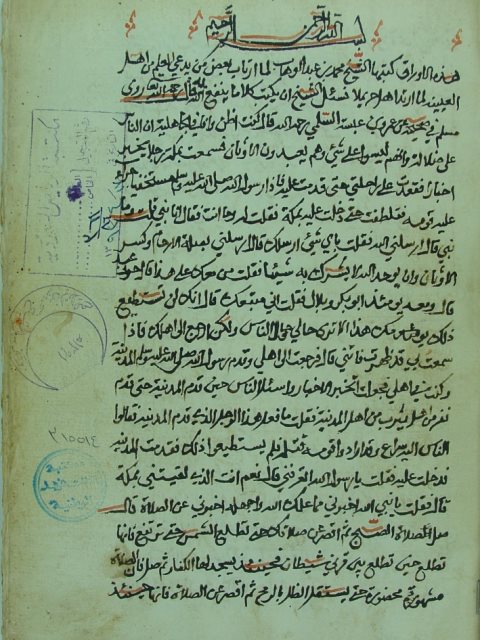 بسم الله الرحمن الرحيم
هذه الاوراق كتبها الشيخ محمد بن عبد الوهاب لما ارتاب بعض من يدعي العلم من اهل
العيينه لما ارتد اهل حريملا فسئل الشيخ ان يكتب كلاما ينفع الله به قال رحمه الله روى
مسلم في صحيحه عن عمرو بن عبسه السلمي رضي الله عنه قال كنت اظن وانا في الجاهلية ان الناس
على ضلالة وانهم ليسوا على شيء وهم يعبدون الاوثان فسمعت برجل بمكة يخبر
اخبارا فقعدت على راحلتي حتى قدمت عليه فاذا رسول الله صلى الله عليه وسلم مستخفيا جرءاء
عليه قومه فتلطفت حتى دخلت عليه بمكة فقلت له وما انت فقال انا نبي قلت وما
نبي قال ارسلني الله فقلت باي شيء ارسلك قال ارسلني بصلة الارحام وكسر
الاوثان وان يوحد الله لا يشرك به شيئا فقلت من معك على هذا قال حر وعبد
قال ومعه يومئذ ابو بكر وبلال فقلت اني متبعك قال انك لن تستطيع
ذلك يومك هذا الا ترى حالي وحال الناس ولكن ارجع الى اهلك فاذا
سمعت بي قد ظهرت فاتني قال فذهبت الى اهلي وقدم رسول الله صلى الله عليه وسلم المدينة
وكنت في اهلي فجعلت اتخبر الاخبار واسئل الناس حين قدم المدينة حتى قدم
نفر من اهل يثرب من اهل المدينة فقلت ما فعل هذا الرجل الذي قدم المدينة فقالوا
الناس اليه سراع وقد اراد قومه قتله فلم يستطيعوا ذلك فقدمت المدينة
فدخلت عليه فقلت يا رسول الله اتعرفني قال نعم انت الذي لقيتني بمكة
قال فقلت يا نبي الله اخبرني مما علمك الله واجهله اخبرني عن الصلاة قال
صل صلاة الصبح ثم اقصر عن صلاتك حتى تطلع الشمس حتى ترتفع فانها
تطلع حين تطلع بين قرني شيطان فحينئذ يسجد لها الكفار ثم صل فان الصلاة
مشهودة محضورة حتى يستقل الظل بالرمح ثم اقصر عن الصلاة فانها حينئذ
٢١٥٥١٤